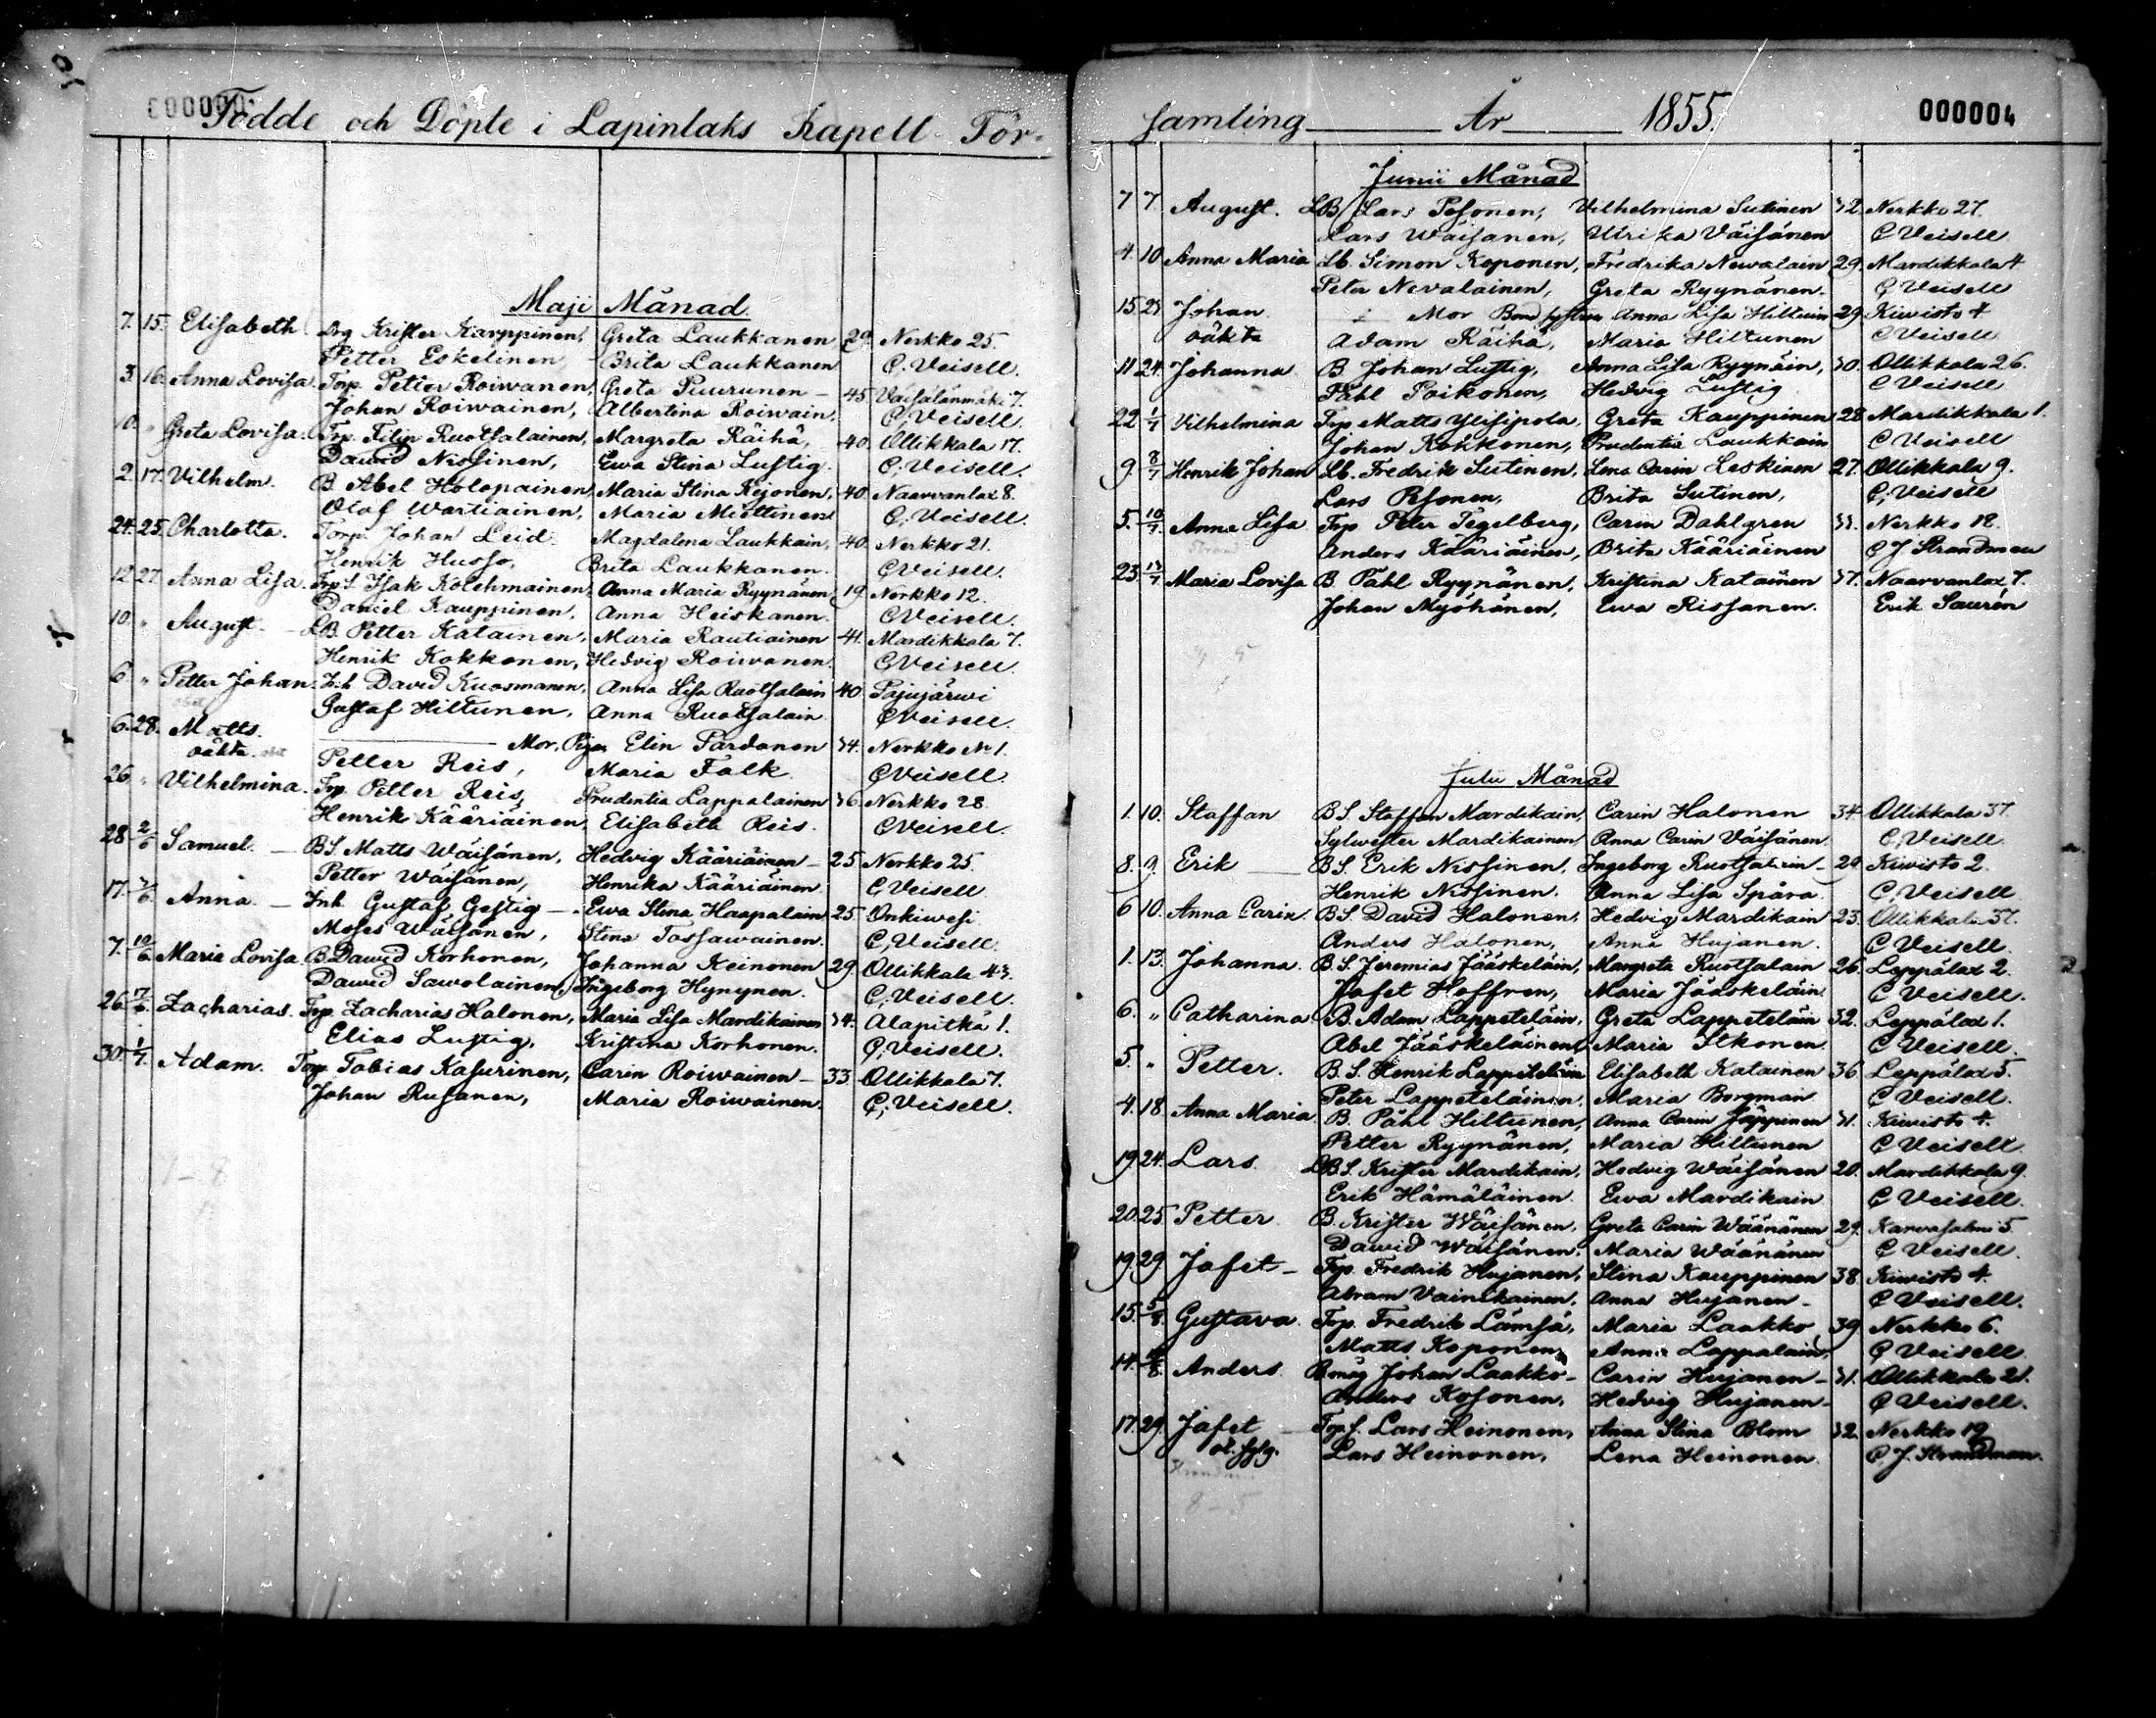 000003
Födde och Döpte i Lapinlaks Kapell För-
Maji Månad.
7. 15. Elisabeth Drg Krister Karppinen, Greta Laukkanen 29. Nerkko 25.
Petter Eskelinen, Brita Laukkanen C. Veisell.
3. 16. Anna Lovisa. Torp. Petter Roiwanen, Greta Puurunen - 45. Väisälänmäki 7.
Johan Roiwainen, Albertina Roiwain. C. Veisell.
10. " Greta Lovisa. Trp. Filip Ruotsalainen, Margreta Räihä, 40. Ollikkala 17.
Dawid Nissinen, Ewa Stina Lustig. C. Veisell.
2. 17. Vilhelm. B. Abel Holopainen, Maria Stina Kejonen, 40. Naarvanlax 8.
Olof Wartiainen, Maria Miettinen C. Veisell.
24. 25. Charlotta. Torp. Johan Leid. Magdalena Laukkain, 40. Nerkko 21.
Henrik Husso, Brita Laukkanen. C Veisell.
12. 27. Anna Lisa. Trp S. Isak Kolehmainen, Anna Maria Ryynänen, 19. Nerkko 12.
Daniel Kauppinen, Anna Heiskanen. C Veisell.
10. " August. - LB. Petter Katainen, Maria Rautiainen 41. Mardikkala 7.
Henrik Kokkonen, Hedvig Roiwanen. C Veisell.
6. " Petter Johan. Inh David Kuosmanen, Anna Lisa Ruotsalain 40 Pajujärwi
Gustaf Hiltunen, Anna Ruotsalain C Veisell.
6. 28. Matts. Mor, Pigan Elin Pardanen 34. Nerkko No 1.
oäkta. Petter Reis, Maria Falk. C Veisell.
26 " Vilhelmina. Trp. Petter Reis, Prudentia Lappalainen 36 Nerkko 28.
Henrik Kääriäinen, Elisabeth Reis. C Veisell.
28 2/6 Samuel. - BS. Matts Wäisänen, Hedvig Kääriäinen - 25 Nerkko 25.
Petter Waisänen, Henrika Kääriäinen C Veisell.
17. 3/6 Anna. - Inh. Gustaf Gestig - Ewa Stina Haapalain 25 Onkiwesi
Moses Wäisänen, Stina Tossawainen. C, Veisell.
7. 10/6 Maria Lovisa. B. Dawid Korhonen, Johanna Keinonen 29. Ollikkala 43.
Dawid Sawolainen, Ingeborg Hynynen. C, Veisell.
26 17/6 Zacharias. Trp. Zacharias Halonen, Maria Lisa Mardikainen 34. Alapitkä 1.
Elias Lustig, Kristina Korhonen. C, Veisell.
30. 1/7. Adam. Torp Tobias Kasurinen, Carin Roiwainen - 33. Ollikkala 7.
Johan Rusanen, Maria Roiwainen. C, Veisell.
samling År 1855. 000004
Junii Månad
7 7. August. LB Lars Pesonen, Vilhelmina Sutinen 32. Nerkko 27.
Lars Waisanen, Ulrika Väisänen C Veisell
4. 10 Anna Maria Lb. Simon Koponen, Fredrika Newalain 29. Mardikkala 4.
Peter Nevalainen, Greta Ryynänen. C Veisell
15. 21 Johan Mor Anna Lisa Hiltuin 29. Kiwisto 4
oäkta Adam Räihä, Maria Hiltunen C Veisell
11 24. Johanna B Johan Lustig, Anna Lisa Ryynäin, 30. Ollikkala 26.
Påhl Poikonen, Hedvig Lustig C Veisell
22 1/7 Vilhelmina Trp Matts Ylisipola, Greta Kauppinen 28 Mardikkala 1.
Johan Kokkonen, Prudentia Laukkain C Veisell
9. 8/7 Henrik Johan Lb. Fredrik Sutinen, Lena Carin Leskinen 27. Ollikkala 9.
Lars Pesonen, Brita Sutinen, C, Veisell
5. 10/7. Anna Lisa Trp Peter Tegelberg, Carin Dahlgren 33. Nerkko 18.
Anders Kääriäinen, Brita Kääriäinen C J Strandman
23. 13/7 Maria Lovisa B Påhl Ryynänen, Kristina Katainen 37. Naarvanlax 7.
Johan Myöhänen, Ewa Rissanen. Erik Saurén
Julii Månad
1. 10. Staffan BS. Staffan Mardikain, Carin Halonen 34 Ollikkala 37.
Sylwester Mardikainen, Anna Carin Väisänen C, Veisell.
8. 9. Erik BS. Erik Nissinen, Ingeborg Ruotsalain - 29 Kiwisto 2.
Henrik Nissinen. Anna Lisa Spåra. C, Veisell
6 10. Anna Carin. BS. David Halonen, Hedvig Mardikain 23. Ollikkala 37.
Anders Halonen, Anna Hujanen. C Veisell.
1. 13. Johanna. B.S. Jeremias Jääskeläin, Margreta Ruotsalain 26. Leppälax 2.
Jafet Hoffren, Maria Jääskeläin C Veisell.
6. " Catharina B. Adam Lappeteläin, Greta Lappeteläin 32. Leppälax 1.
Abel Jääskeläinen, Maria Itkonen. C Veisell.
5. " Petter. B.S. Henrik Lappeteläin Elisabeth Katainen 36 Leppälax 5.
Peter Lappeteläinen, Maria Borgman C Veisell.
4. 18. Anna Maria B. Påhl Hiltunen, Anna Carin Jäppinen 31. Kiwisto 4.
Petter Ryynänen, Maria Hiltunen C Veisell.
19 24. Lars. LBS. Krister Mardikain, Hedvig Wäisänen 20. Mardikkala 9.
Erik Hämäläinen. Ewa Mardikain C Veisell.
20. 25. Petter. B. Krister Wäisänen, Greta Carin Wäänänen 29. Karvasalmi 5.
Dawid Waisänen. Maria Wäänänen C Veisell.
19 29 Jafet - Trp. Fredrik Hujanen, Stina Kauppinen 38. Kiwisto 4.
Abram Vainikainen. Anna Hujanen - C Veisell.
15. 5/8. Gustava. Trp. Fredrik Lämsä, Maria Laakko 39 Nerkko 6.
Matts Koponen, Anna Lappalain, C Veisell.
14. Anders. Johan Laakko - Carin Hujanen - 31. Ollikkala 21.
Anders Kosonen, Hedvig Hujanen - C Veisell.
17. 29. Jafet Torp. S. Lars Heinonen, Anna Stina Blom 32. Nerkko 19
Lars Heinonen, Lena Heinonen. C, J. Strandman.
8-5